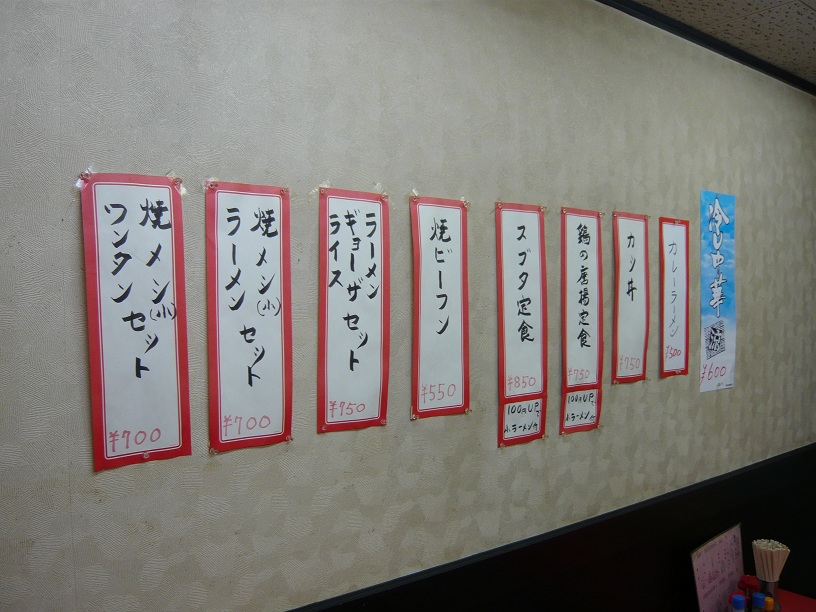 焼メシ(小)
ワンタン
セット
¥700
焼メシ(小)
ラーメン
セット
¥700
ラーメン
ギョーザ
ライス
セット
¥750
焼ビーフン
¥550
スブタ定食
¥850
100円UPで
小ラーメン付
鶏の唐揚定食
¥750
100円UPで
小ラーメン付
カツ丼
¥750
カレーラーメン
¥500
冷し中華
¥600